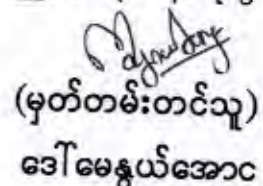 (မှတ်တမ်းတင်သူ)
ဒေါ်မေနွယ်အောင